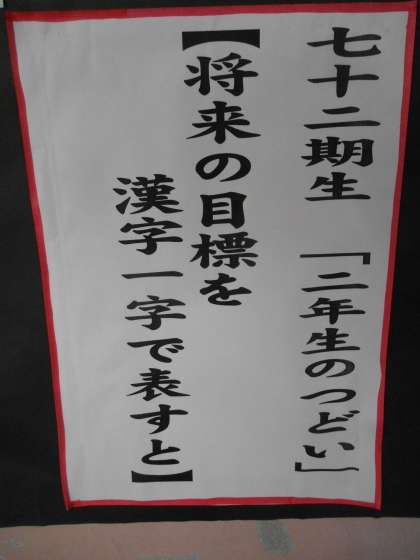 七十二期生　「二年生のつどい」
【将来の目標を
漢字一字で表すと】